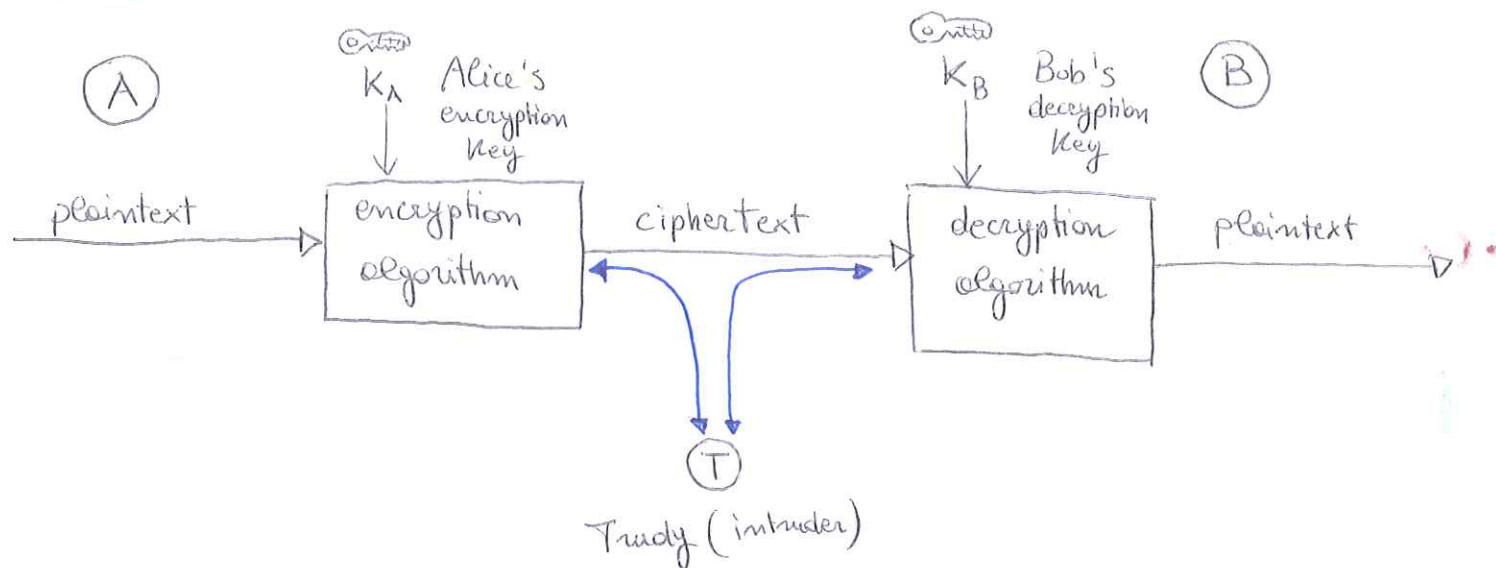 A
K_A
Alice's
encryption
Key
K_B
Bob's
decryption
Key
B
plaintext
encryption
algorithm
ciphertext
decryption
algorithm
plaintext
T
Trudy (intruder)